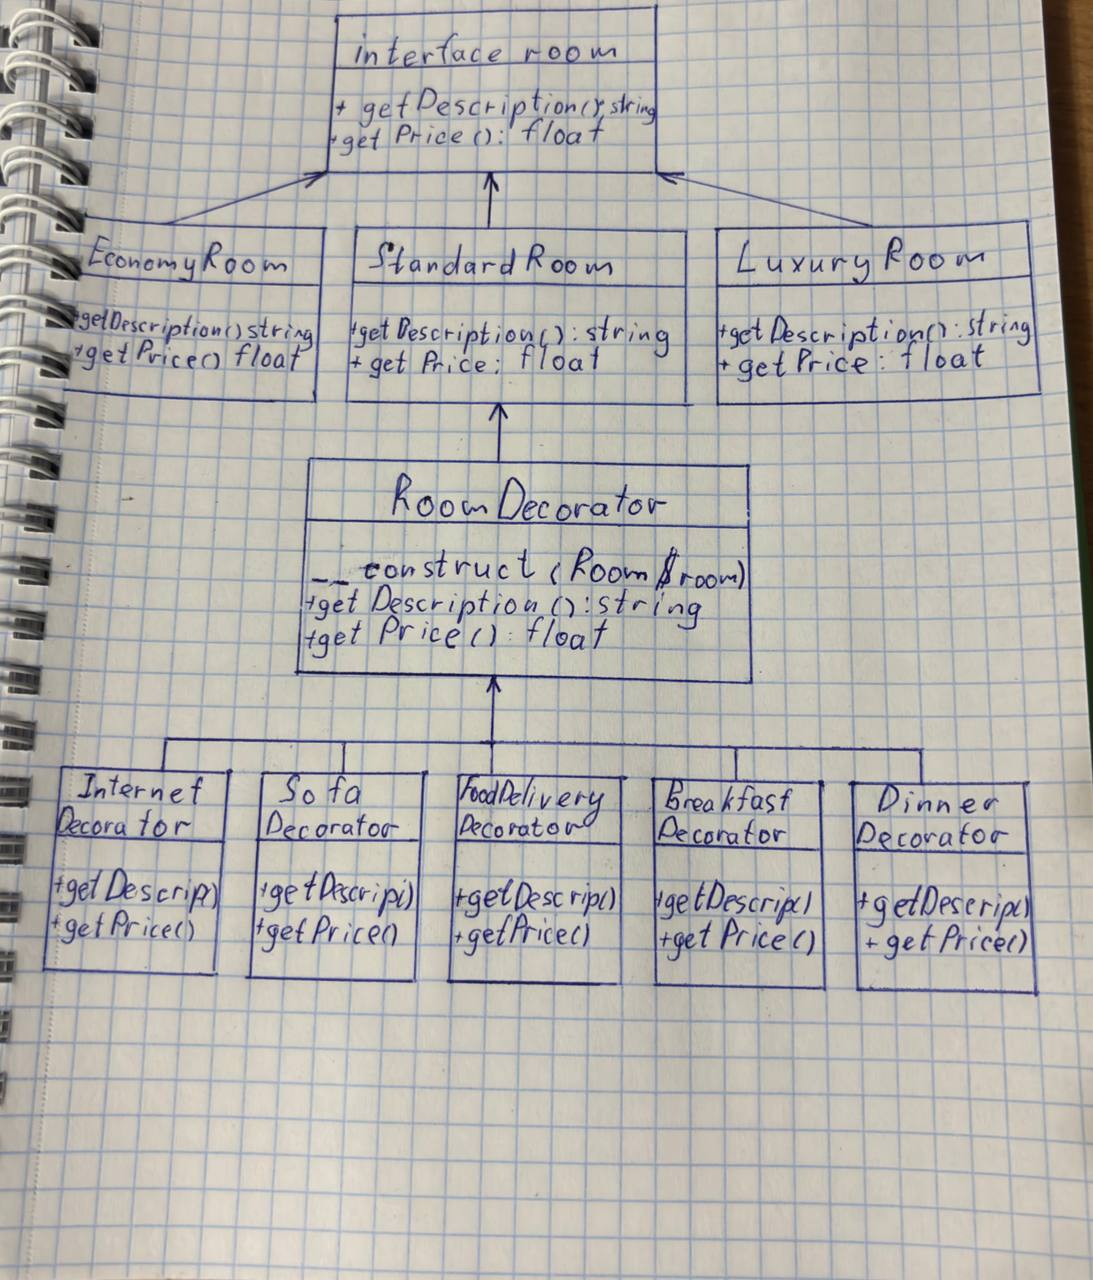 interface room
+ getDescription(): string
+ get Price (): float
EconomyRoom
+getDescription() string
+getPrice() float
Standard Room
+get Description(): string
+ get Price: float
Luxury Room
+get Description(): string
+ get Price: float
Room Decorator
__ construct (Room $room)
+get Description (): string
+get Price (): float
Internet
Decorator
+getDescrip()
+getPrice()
Sofa
Decorator
+getDescrip()
+getPrice()
FoodDelivery
Decorator
+getDescrip()
+getPrice()
Breakfast
Decorator
+getDescrip()
+get Price()
Dinner
Decorator
+getDescrip()
+ getPrice()